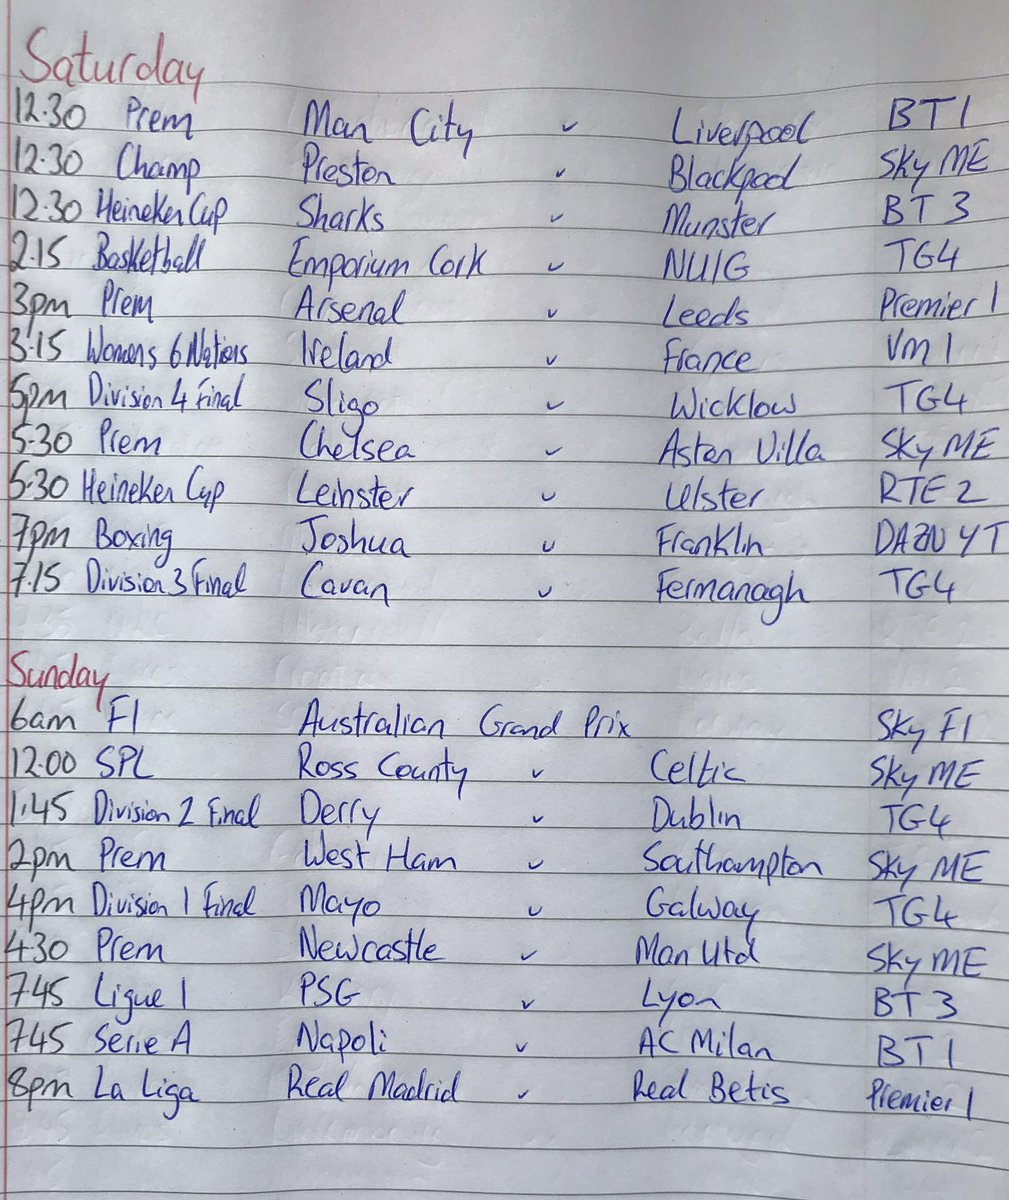 Saturday
12.30 Prem Man City v Liverpool BT1
12.30 Champ Preston v Blackpool Sky ME
12.30 Heineken Cup Sharks v Munster BT 3
2.15 Basketball Emporium Cork v NUIG TG4
3pm Prem Arsenal v Leeds Premier 1
3.15 Womens 6 Nations Ireland v France VM 1
5pm Division 4 Final Sligo v Wicklow TG4
5.30 Prem Chelsea v Aston Villa Sky ME
5.30 Heineken Cup Leinster v Ulster RTE 2
7pm Boxing Joshua v Franklin DAZN YT
7.15 Division 3 Final Cavan v Fermanagh TG4
Sunday
6am F1 Australian Grand Prix Sky F1
12.00 SPL Ross County v Celtic Sky ME
1.45 Division 2 Final Derry v Dublin TG4
2pm Prem West Ham v Southampton Sky ME
4pm Division 1 Final Mayo v Galway TG4
4.30 Prem Newcastle v Man Utd Sky ME
7.45 Ligue 1 PSG v Lyon BT 3
7.45 Serie A Napoli v AC Milan BT 1
8pm La Liga Real Madrid v Real Betis Premier 1